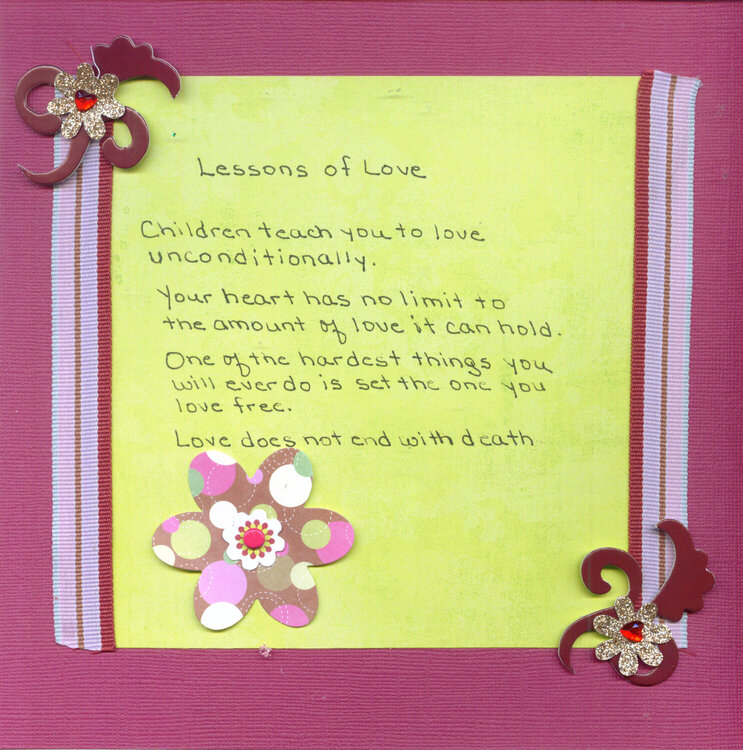 Lessons of Love
Children teach you to love
unconditionally.
Your heart has no limit to
the amount of love it can hold.
One of the hardest things you
will ever do is set the one you
love free.
Love does not end with death